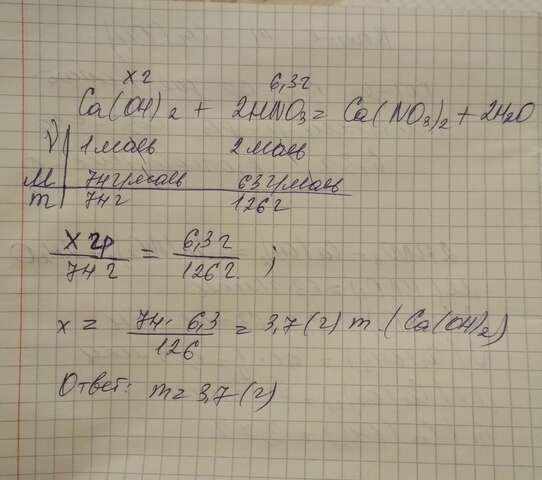 x г 6,3 г
Ca(OH)2 + 2HNO3 = Ca(NO3)2 + 2H2O
ν 1 моль 2 моль
M 74 г/моль 63 г/моль
m 74 г 126 г
x гр / 74 г = 6,3 г / 126 г ;
x = 74 · 6,3 / 126 = 3,7 (г) m (Ca(OH)2)
Ответ: m = 3,7 (г)